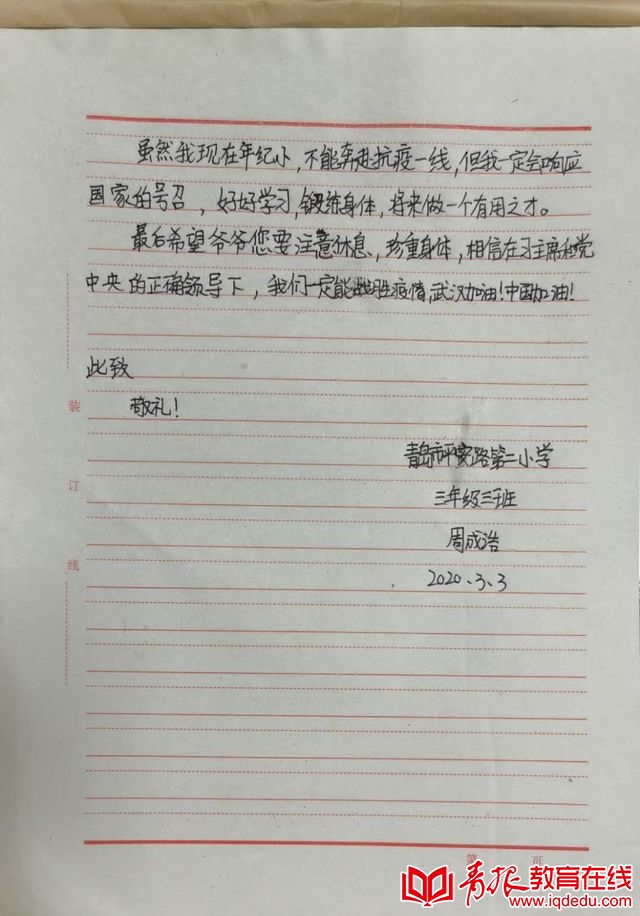 虽然我现在年纪小,不能奔赴抗疫一线,但我一定会响应
国家的号召,好好学习,锻练身体,将来做一个有用之才。
最后希望爷爷您要注意休息,珍重身体,相信在习主席和党
中央的正确领导下,我们一定能战胜疫情,武汉加油!中国加油!
此致
敬礼!
装
订
线
青岛市平安路第二小学
三年级三班
周成浩
2020.3.3
第 页
青报教育在线
www.iqdedu.com